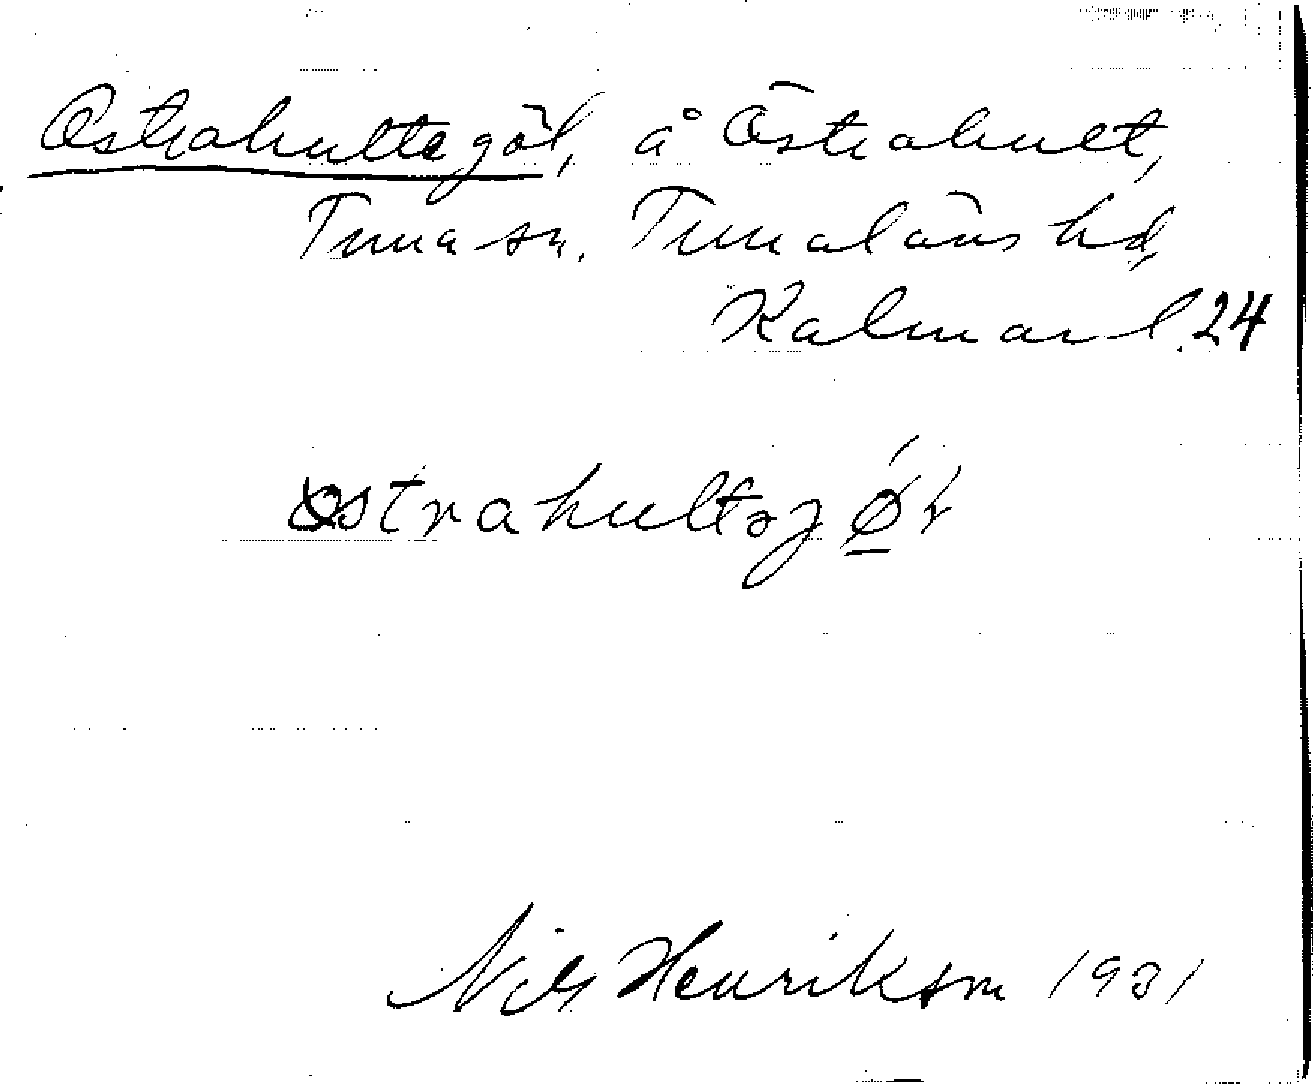 Östrahultegöl, å Östrahult,
Tuna sn. Tunaläns hd,
Kalmar l. 24
Nils Henriksson 1931